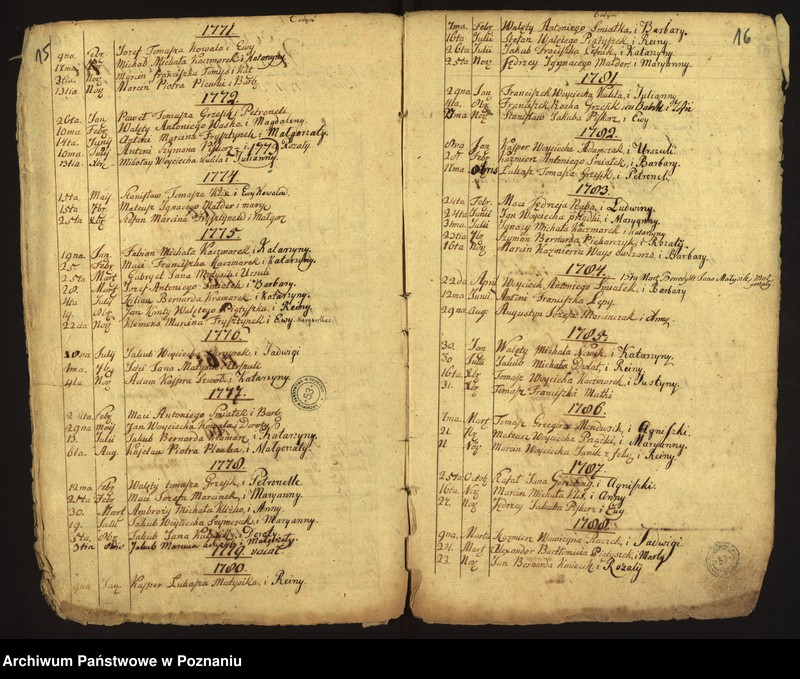 15
1771
9na febr Jozef Tomasza Kowala i Ewy
17ma Michał Michała Kaczmarek i Katarzyny
3tia Nov Marcin Franciszka Tomys i Kat
13tia Nov Marcin Piotra Plewki i Barb
1772
26ta Jan Paweł Tomasza Grzesk i Petroneli
10ma Febr Walęty Antoniego Waśko i Magdaleny
14ta Junij Antoni Marcina Frysztynek i Małgorzaty
10ma Julij Antoni Szymona i Rozaly
1773
13tia Xbr Mikołay Woyciecha Kulila i Julianny
1774
15ta Maij Stanisław Tomasza i Ewy Kowalow
15ta 7br Mateusz Ignacego Małder i mary
25ta Xbr Stefan Marcina Frysztynek i Małgor
1775
19na Jan Fabian Michała Kaczmarek i Katarzyny
25 Febr Maci Franciszka Kaczmarek i Katarzyny
25ta Mart Gabryel Jana Matysik i Urszuli
20 Mart Jozef Antoniego Smiatek i Barbary
4ta Julij Julian Bernarda Kramarek i Katarzyny
19 Obr Jan Kanty Walętego Piotyszka i Reiny
22da Nov Klemens Marcina Frysztynek i Ewy
1776
Julij Jakub Woyciecha i Jadwigi
1ma 7br Idzi Jana Matysik i Urszuli
4ta Nov Adam Kaspra Szwok i Katarzyny
1777
24ta Febr Maci Antoniego Smiatek i Barb
29na Maij Jan Woyciecha i Doroty
13 Julii Jakub Bernarda Kramar i Katarzyny
6ta Aug Kajetan Piotra Plewka i Małgorzaty
1778
12ma Febr Walęty tomasza Grzesk i Petronelle
25ta Febr Maci Jozefa Marcinek i Maryanny
30 Mart Ambroży Michała i Anny
19 Julii Jakub Woyciecha Szymczak i Maryanny
5ta Obr Jakub Jana i Doroty
3tia Jakub Marcina i Małgorzaty
1779 vacat
1780
9na Jan Kasper Lukasza Matysika i Reiny
16
7ma Febr Walęty Antoniego Smiatka i Barbary
16ta Julii Stefan Walętego Piotyszek i Reiny
26ta Julii Jakub Franciszka Lesnik i Katarzyny
25ta Nov Jedrzej Ignacego Małder i Maryanny
1781
29na Jan Franciszek Woyciecha Kulila i Julianny
4ta Obr Franciszek Rocha Grzesk
Nov Stanisław Jakuba Piskorz i Ewy
1782
Jan Kasper Woyciecha Adamczak i Urszuli
25 Febr Kazmierz Antoniego Smiatek i Barbary
11ma Łukasz Tomasza Grzesk i Petroneli
1783
24ta Febr Maci Jedrzeja Baba i Ludwiny
24ta Junii Jan Woyciecha Prządki i Maryanny
31ma Julij Ignacy Michała Kaczmarek i Katarzyny
23tia 7br Szymon Bernarda Piekarczyk i Rozaly
16ta Nov Marcin Kazmierza Ways owczarz i Barbary
1784
1579 Mart Benedykt Jana Matysik i Małgorzaty
22da April Woyciech Antoniego Smiatek i Barbary
12ma Junii Antoni Franciszka Lepy
29na Aug Augustyn Jozefa Marcinczak i Anny
1785
30 Jan Walęty Michała Nowak i Katarzyny
30 Julii Jakub Michała Dudat i Reiny
16ta Xbr Tomasz Woyciecha Kaczmarek i Justyny
31 Xbr Tomasz Franciszki Matki
1786
1ma Mart Tomasz Gregora i Agniszki
21 7br Mateusz Woyciecha Prządki i Maryanny
11 Nov Marcin Woyciecha Janik z żoly i Reiny
1787
25ta Octob Rafał Jana i Agniszki
16ta Nov Marcin Michała Klis i Anny
24 Nov Jedrzej Jakuba Piskorz i Ewy
1788
9na Marti Kazmierz Wawrzyna i Jadwigi
21 Mart Alexander Bartłomieia Piotyszek i Marty
23 Nov Jan Bernarda Kmiecik i Rozaly
Archiwum Państwowe w Poznaniu